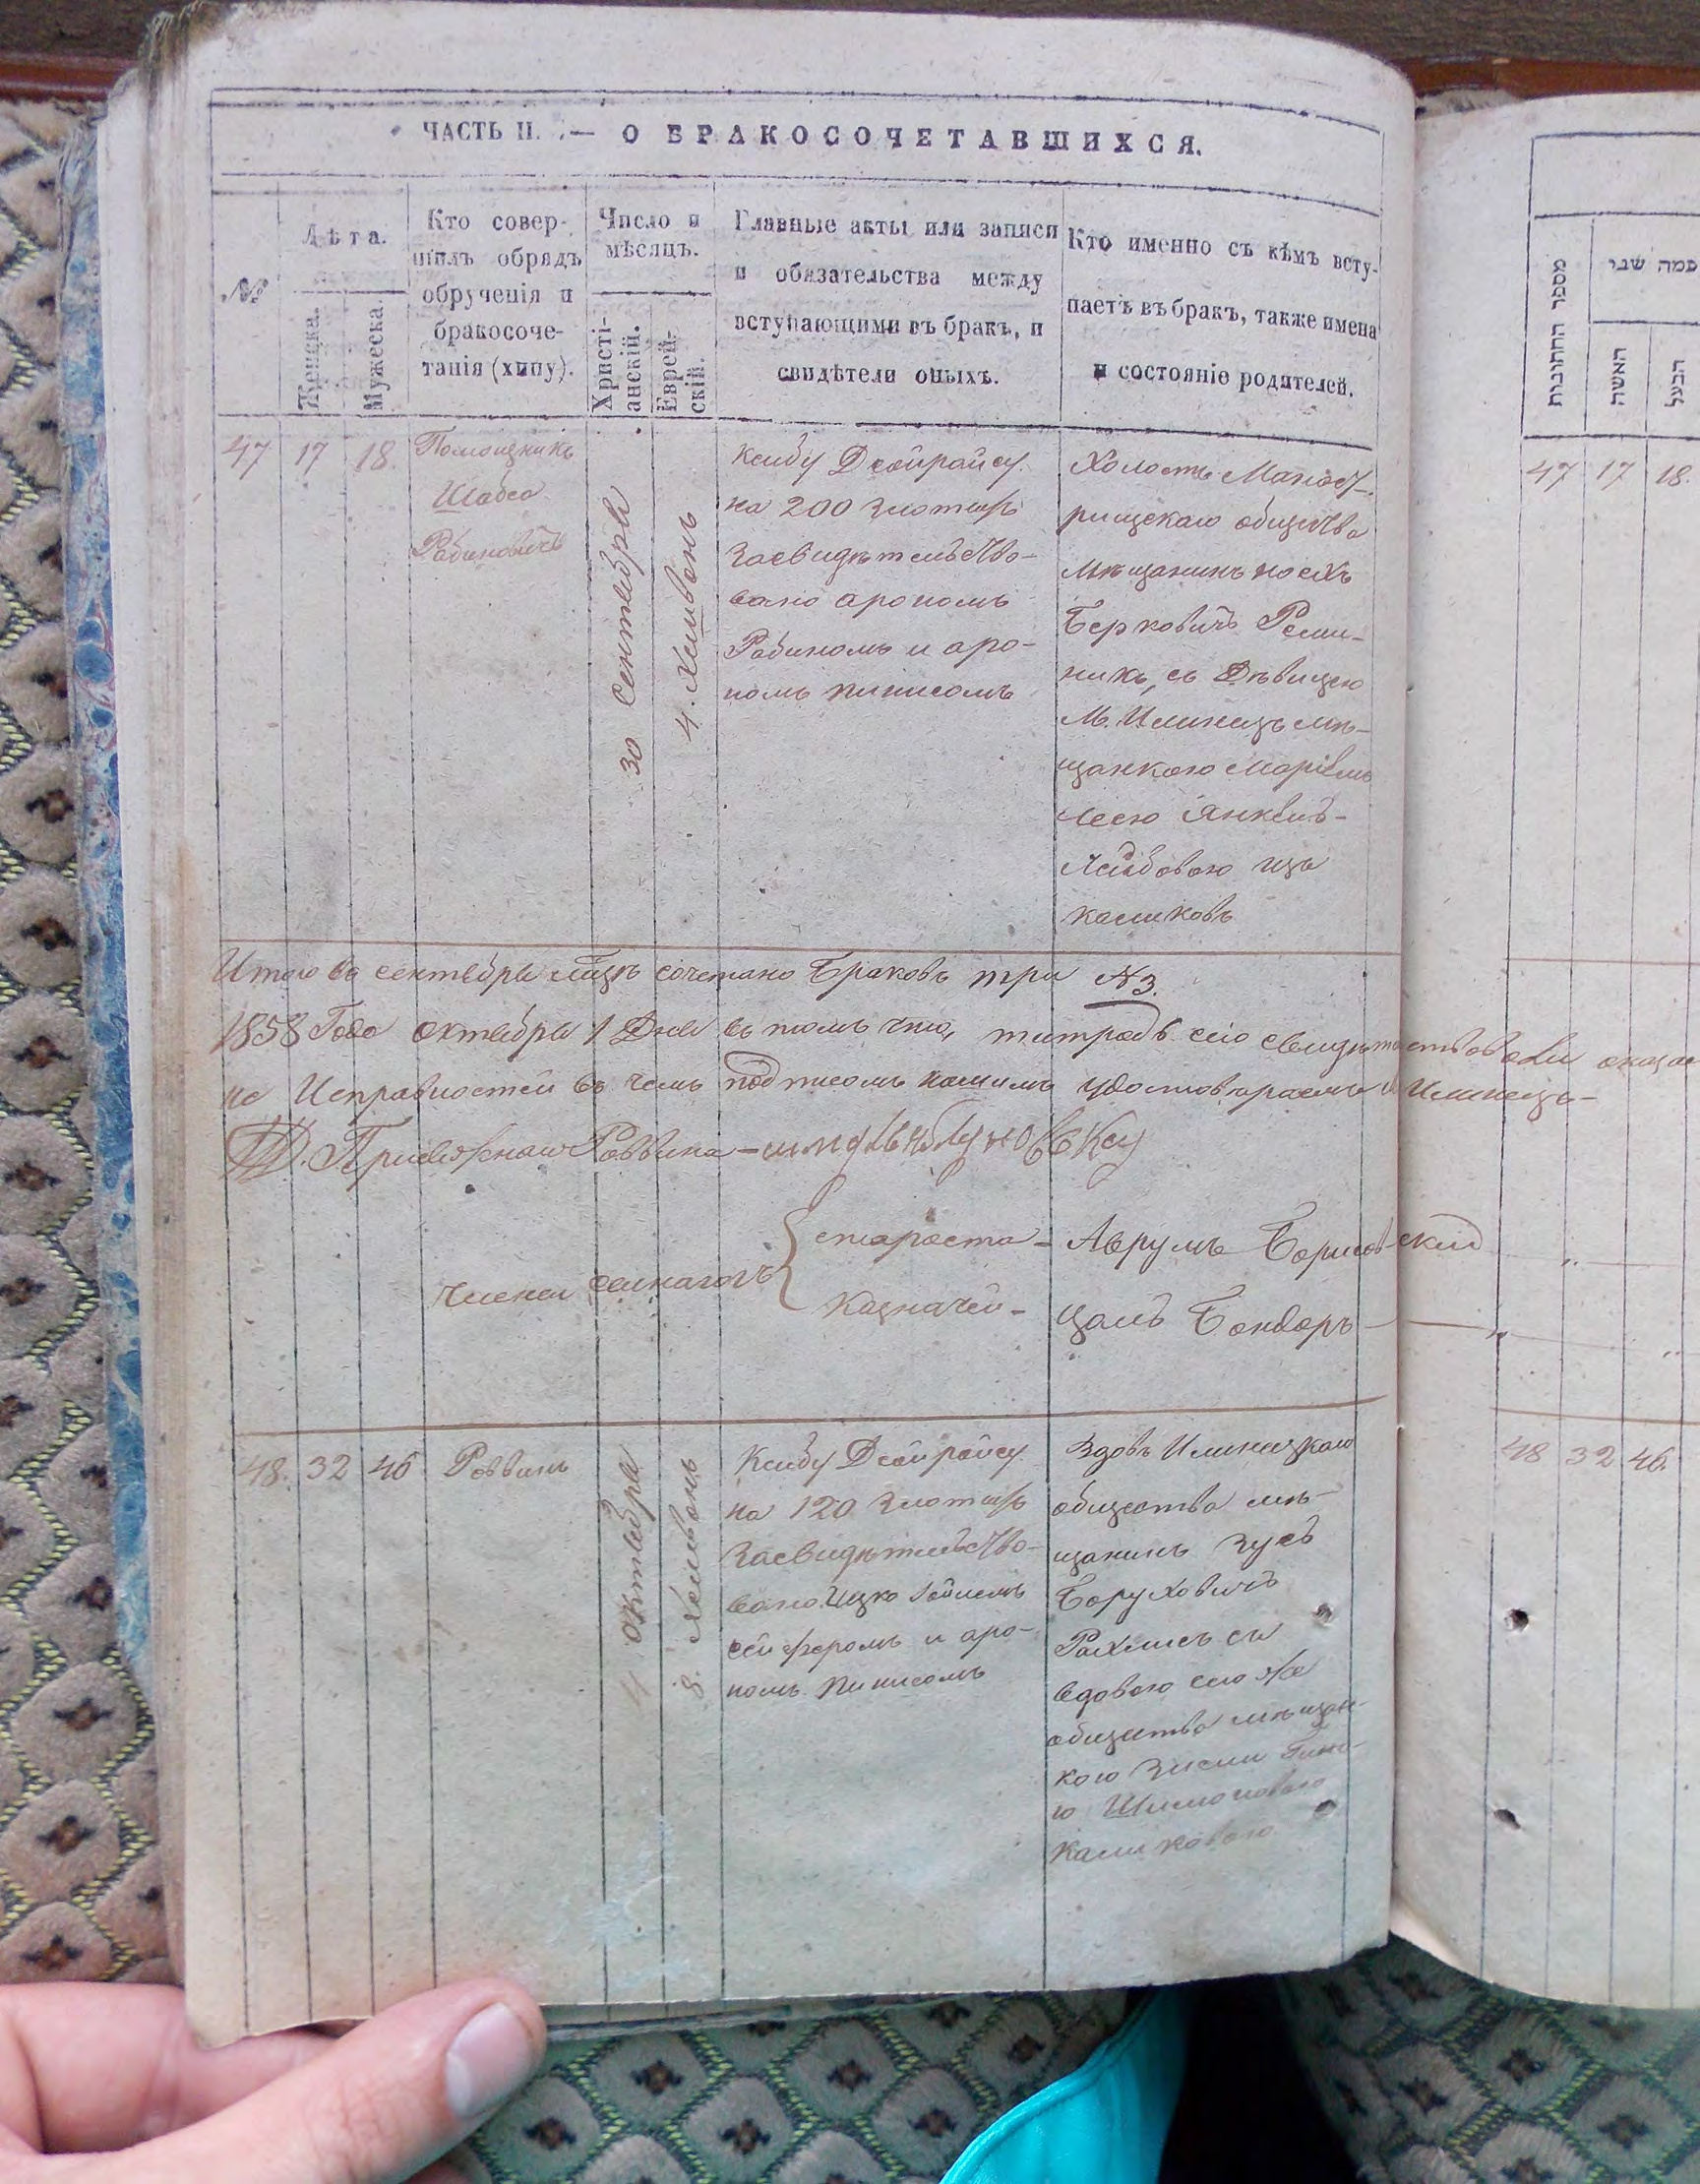 ЧАСТЬ II. — О БРАКОСОЧЕТАВШИХСЯ.
№
Лѣта.
Женска.
Мужеска.
Кто совер-
шилъ обрядъ
обрученія и
бракосоче-
танія (хипу).
Число и
мѣсяцъ.
Христі-
анскій.
Еврей-
скій.
Главные акты или записи
и обязательства между
вступающими въ бракъ, и
свидѣтели оныхъ.
Кто именно съ кѣмъ всту-
паетъ въ бракъ, также имена
и состояніе родителей.
47
17
18.
Помощникъ
Шабса
Рабиновичъ
30 Сентебря
4. Хешвонъ
Ксибу Дсойрайсу
на 200 злотыхъ
засвидѣтельство-
вано ароном
Рабиномъ и аро-
номъ пинисомъ
Холостъ Манаст-
рищскаго общества
мѣщанинъ
Берковичъ
съ Дѣвицею
М. Илинецъ мѣ-
щанкою
Янкель-
Лейбовою изъ
Итого въ сентебрѣ мѣсяцѣ сочетано Браковъ три №3.
1858 Года октебря 1 Дня въ томъ что, титрадь сію свидѣтельствовали оказас
по Исправностей въ чемъ подписомъ нашимъ удостовѣраемъ М Илинецъ-
Раввина
члены синагогъ
староста - Аврумъ Борисовскій
казначей - Бондарь
48.
32
46
Раввинъ
4 октебря
8. Хешвонъ
Ксибу Дсойрайсу
на 120 злотыхъ
засвидѣтельство-
вано Ицко
и аро-
номъ пинисомъ
Вдовъ Илинецкаго
общества мѣ-
щанинъ Зусь
Боруховичъ
съ
вдовою сего же
общества мѣщан-
кою
ю Шимоновою
מספר החתונות
כמה שני
האשה
הבעל
47
17
18.
48
32
46.